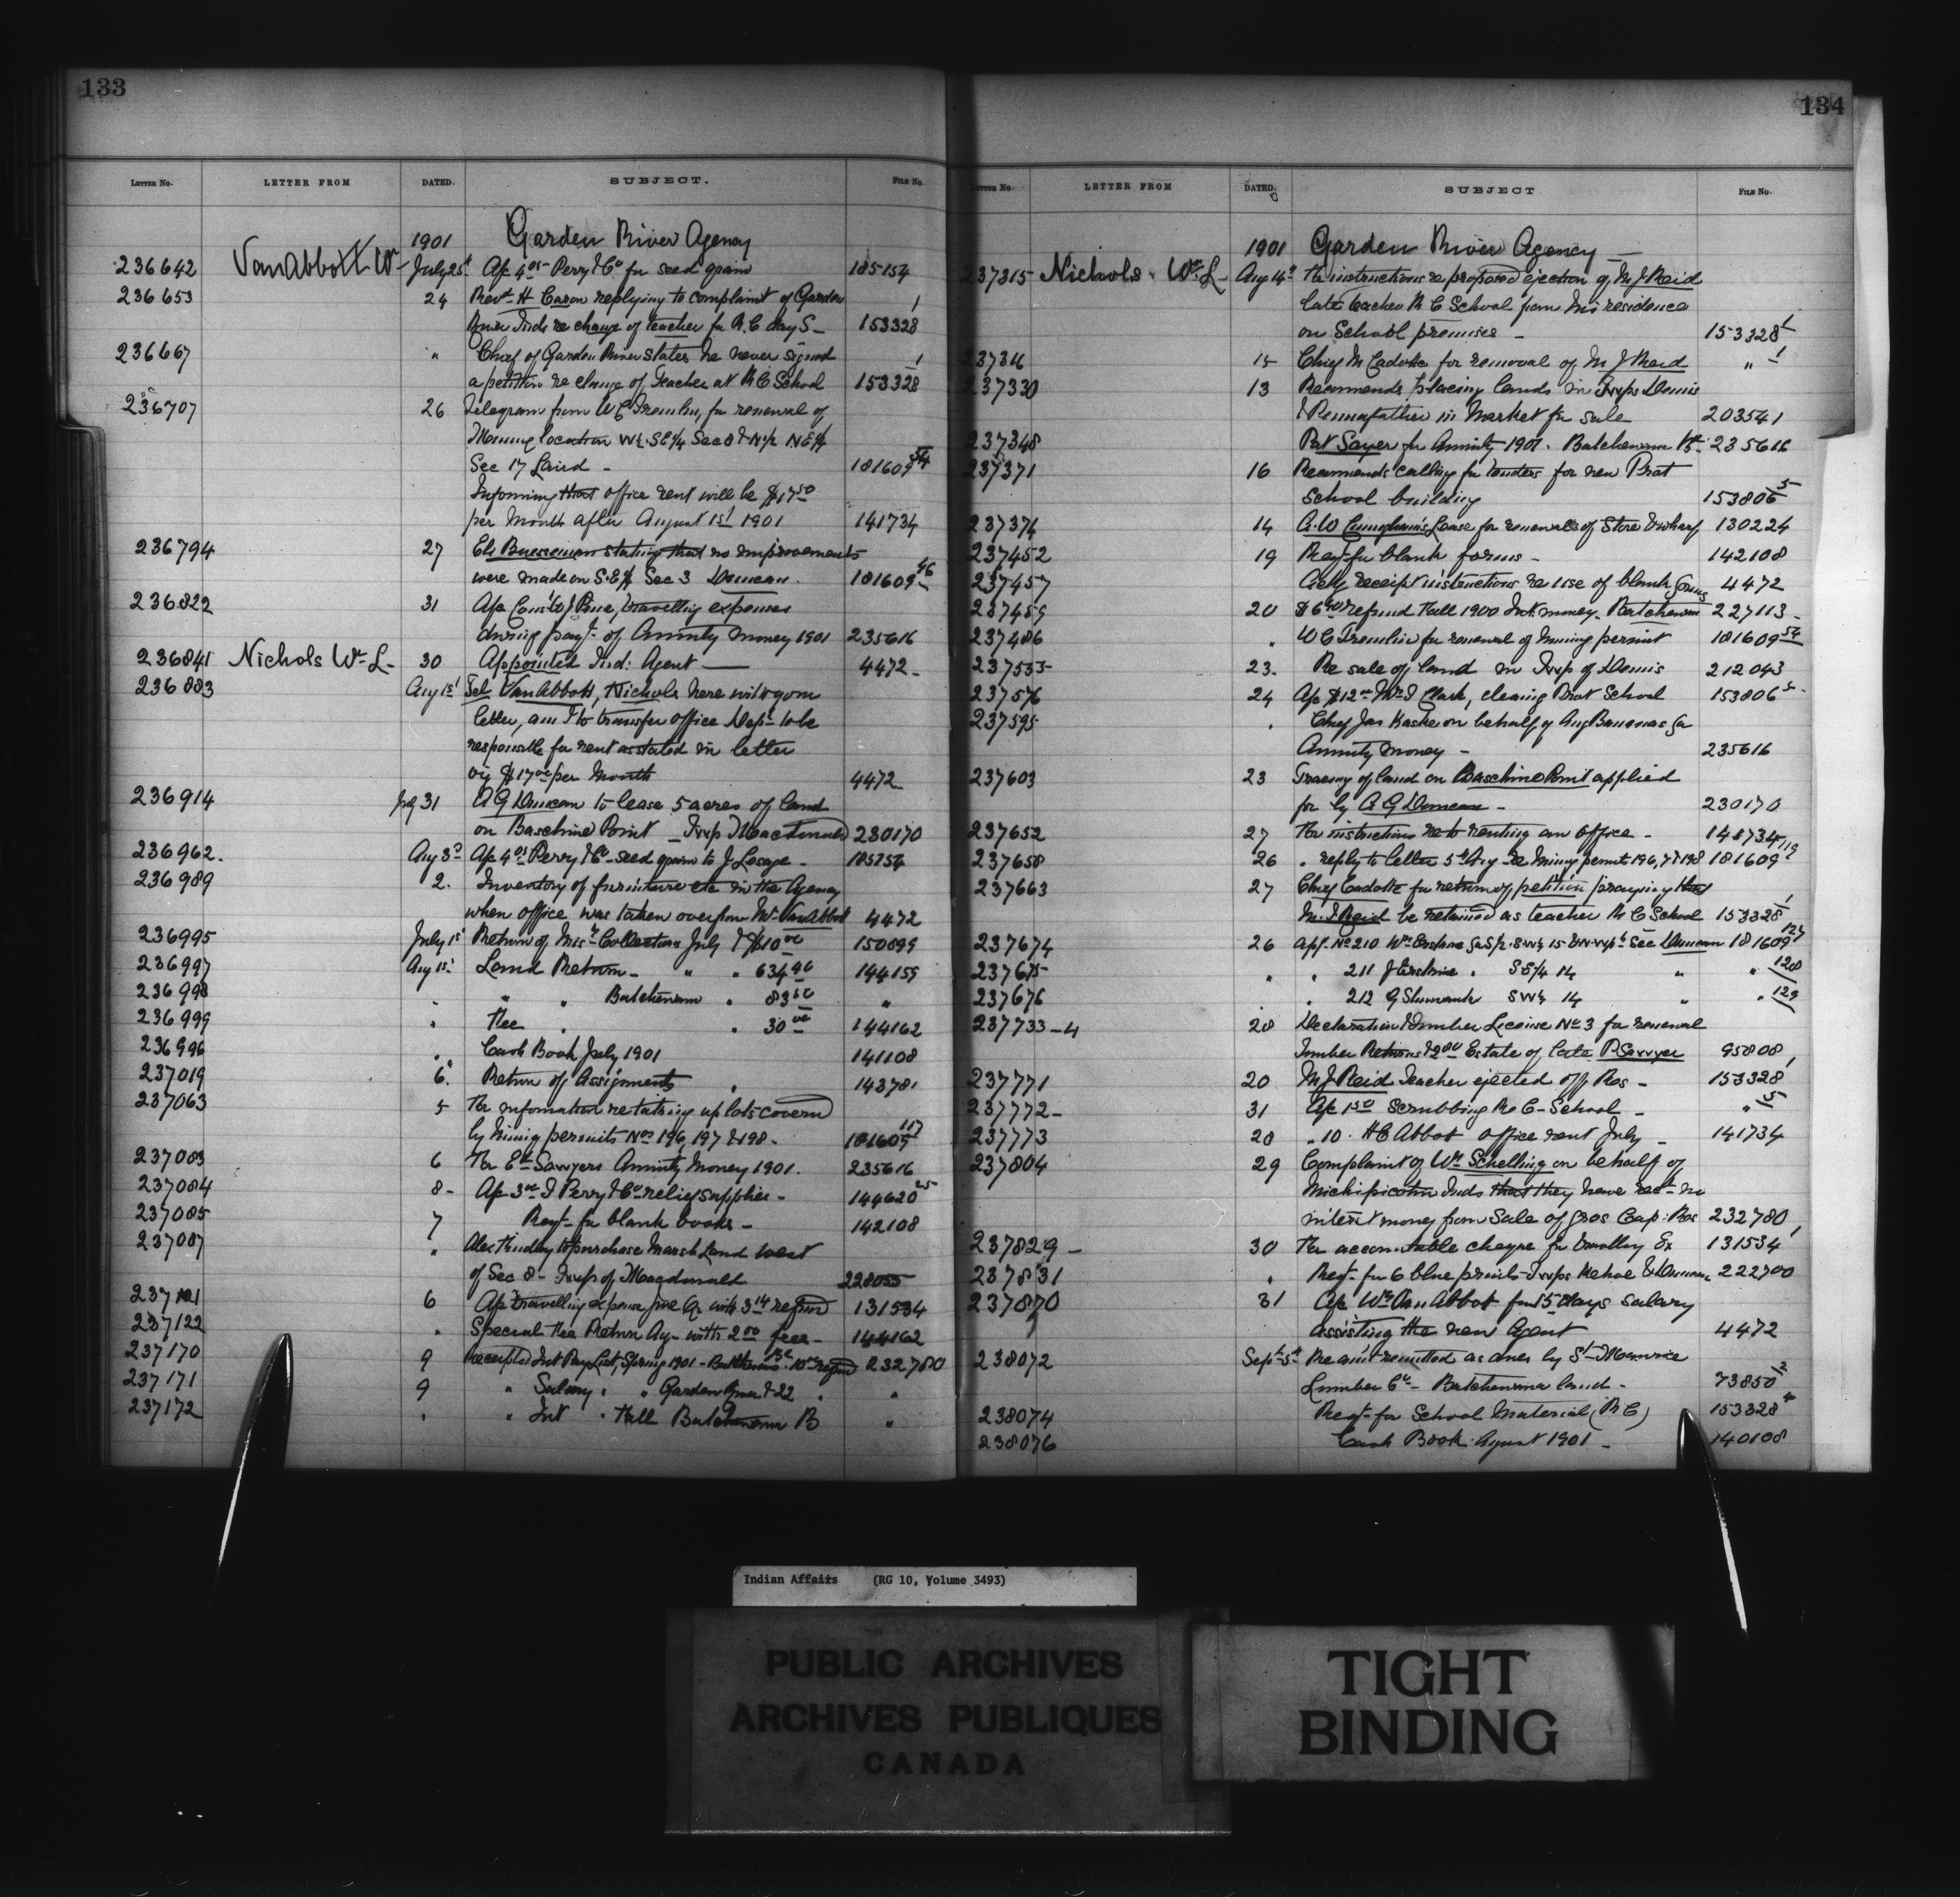 133
LETTER NO. LETTER FROM DATED. SUBJECT. FILE NO.
1901 Garden River Agency
236642 VanAbbott Wm July 25t Ap 4.05 Perry & Co for seed grain 185154
236653 24 Revd H Caron replying to complaint of Garden
River Inds re change of teacher for R.C day S- 153328 1
236667 " Chief of Garden River states he never signed
a petition re change of Teacher at R C School 153328 1
236707 26 Telegram from W C Tremlin, for renewal of
Mining location W½ SE¼ Sec 8 & N½ N.E¼
Sec 17 Laird - 181609 54
Informing that office rent will be $17.50
per Month after August 1st 1901 141734
236794 27 stating that no improvements
were made on S.E¼ Sec 3 Duncan. 181609 46
236822 31 Ap travelling expenses
during payt of Annuity money 1901 235616
236841 Nichols Wm L- 30 Appointed Ind: Agent 4472-
236883 Aug 1st Tel VanAbbott, Nichols here with your
letter, am I to transfer office Dept to be
responsible for rent as stated in letter
viz $17.00 per Month 4472
236914 July 31 A G Duncan to lease 5 acres of land
on Baschine Point - Twp Macdonald 230170
236962. Aug 3d Ap 4.05 Perry & Co - seed grain to J Lesage - 185254
236989 2. Inventory of furniture etc in the Agency
when office was taken over from Mr VanAbbott 4472
236995 July 1st Return of Misc Collections July & $10.00 150899
236997 Aug 1st Land Return - " " 634.96 144159
236998 " " " Batchewana " 83.50 "
236999 " Fee " " 30.00 144162
236996 " Cash Book July 1901 141108
237019 6. Return of Assignments " 143781
237063 5 For information re taking up lots covered
by Mining permits Nos 196, 197 & 198 - 181609 117
237083 6 For Sawyers Annuity Money 1901. 235616
237084 8- Ap 3.00 J Perry & Co relief supplies - 144620 25
237085 7 Reqt for blank books - 142108
237087 " Alex Findlay to purchase Marsh Land west
of Sec 8 - Twp of Macdonald 228055
237121 6 Ap travelling expense June Qr with 3.14 refund 131534
237122 " Special Fee Return Ag - with 2.00 fees - 144162
237170 9 Receipted Int Pay List, Spring 1901 - Batchewana 10.00 refund 232780
237171 9 " Salary " " Garden River & 22 " "
237172 " " Int " Fall Batchewana B "
134
LETTER NO. LETTER FROM DATED. SUBJECT FILE NO.
1901 Garden River Agency -
237315 Nichols Wm L- Aug 14th For instructions re proposed ejection of M J Reid
late teacher R C School from his residence
on School premises - 153328 1
237316 15 Chief M Cadotte for removal of M J Reid " 1
237330 13 Recommends placing lands in Twps Dennis
& Pennefather in Market for sale 203541
237348 Pat Sayer for Annuity 1901. Batchewana 235616
237371 16 Recommends calling for tenders for new Prot
School building 153806 5
237374 14 Lease for renewals of Store & wharf 130224
237452 19 Reqt for blank forms - 142108
237457 Ackg receipt instructions re use of blank forms 4472
237459 20 $6.90 refund Fall 1900 Int. money - Batchewana 227113 -
237486 " W C Tremlin for renewal of Mining permit 181609 54
237535 23. Re sale of land in Twp of Dennis 212043
237576 24 Ap $12.00 Mrs J Clark, cleaning Prot School 153806 5
237595 " Chief Jas on behalf of Aug for
Annuity Money - 235616
237603 23 Tracing of land on Baschine Point applied
for by A G Duncan - 230170
237652 27 For instructions re to renting an office - 141734
237658 26 " reply to letter 5th Aug re Mining permit 196, 7 & 198 181609 119
237663 27 Chief Cadotte for return of petition praying that
M. J Reid be retained as teacher R C School 153328 1
237674 26 app. No 210 Wm Erskine for S½ SW¼ 15 Sec Duncan 181609 127
237675 " " 211 J Erskine " SE¼ 14 " " 128
237676 " " 212 G SW¼ 14 " " 129
237733-4 28 Declaration & Timber License No 3 for renewal
Timber Returns Estate of late P Sawyer 95808
237771 20 M J Reid Teacher ejected off Res - 153328 1
237772- 31 Ap 1.50 Scrubbing R C - School - " 5
237773 28 " 10. H C Abbot office rent July - 141734
237804 29 Complaint of Wm Schelling on behalf of
Michipicoten Inds that they have recd no
interest money from Sale of Gros Cap: Res 232780
237829- 30 For accountable cheque for travelling Ex 131534
237831 " Reqt for 6 blue prints Twps Kehoe & Duncan 222700
237870 31 Ap Wm Van Abbot for 15 days salary
assisting the new Agent 4472
238072 Sept 5th Re amt remitted as dues by St Maurice
Lumber Co - Batchewana land - 73850 2
238074 Reqt for School Material (R C) 153328 4
238076 Cash Book August 1901 - 140108
Indian Affairs (RG 10, Volume 3493)
PUBLIC ARCHIVES
ARCHIVES PUBLIQUES
CANADA
TIGHT
BINDING